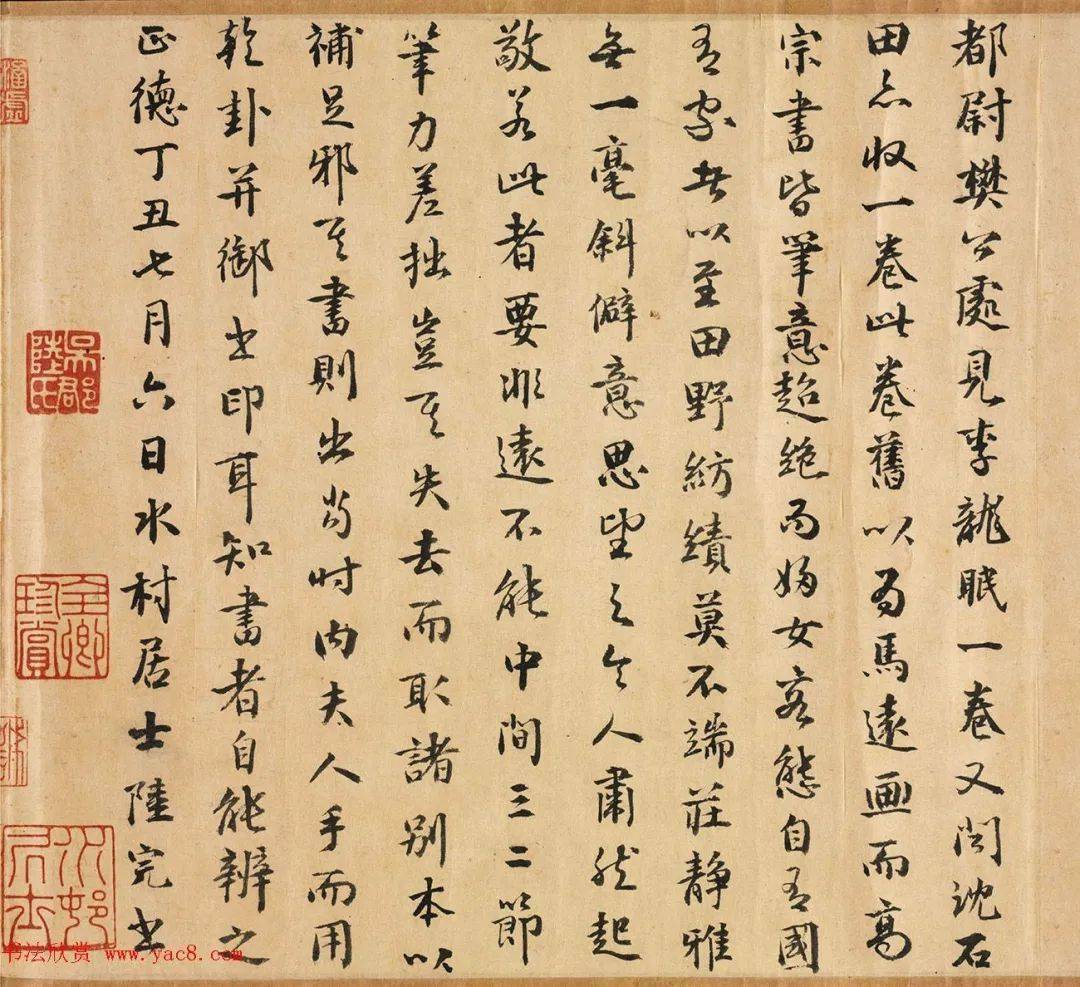 都尉樊公處見李龍眠一卷又聞沈石
田亦收一卷此卷舊以為馬遠画而高
宗書皆筆意超絶而婦女容態自有國
有家者以至田野紡績莫不端莊静雅
無一毫斜僻意思望之令人肅然起
敬若此者要非遠不能中間三二節
筆力差拙豈其失去而取諸别本以
補足邪其書則出當时内夫人手而用
乾卦并御書印耳知書者自能辨之
正德丁丑七月六日水村居士陸完書
吳郡陸氏
全卿珍賞
水邨居士
书法欣赏 www.yac8.com